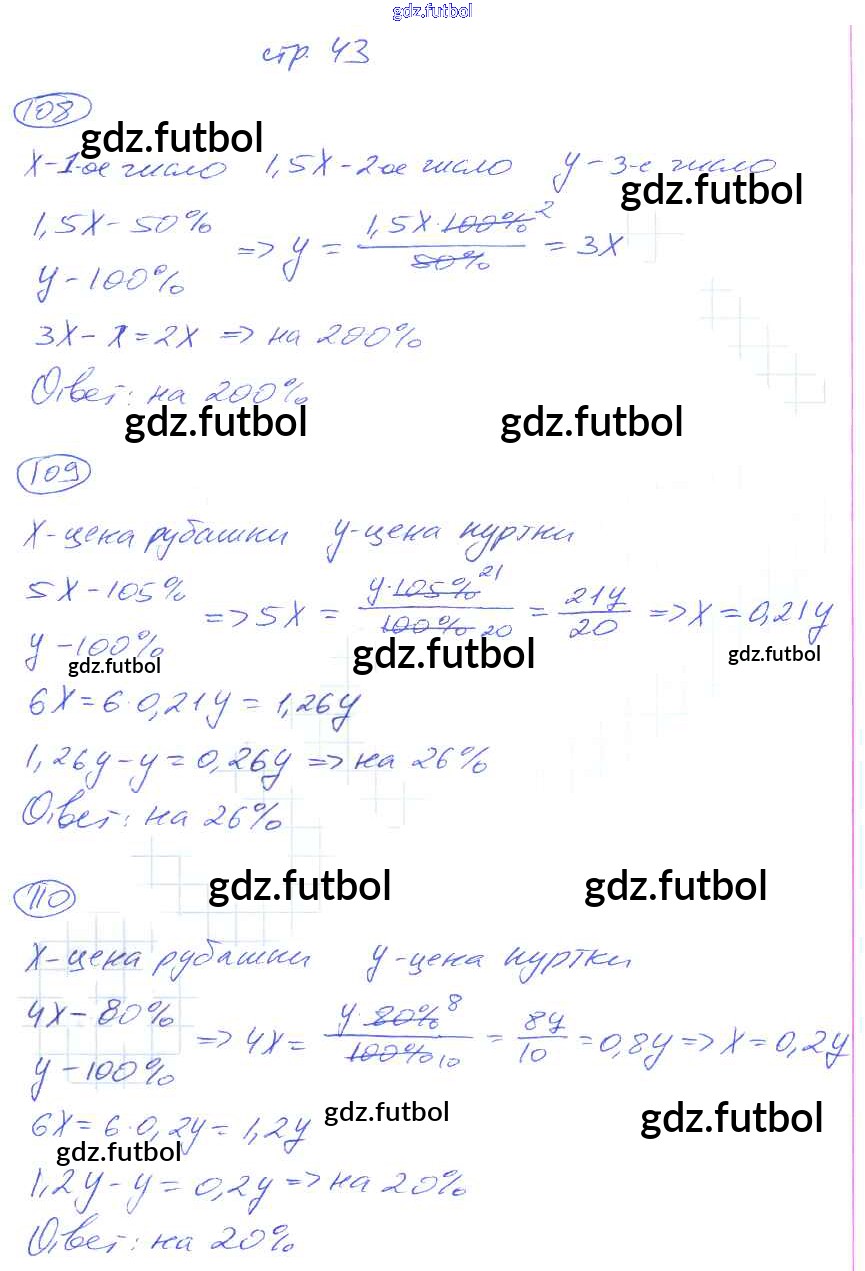 gdz.futbol
стр. 43
108
gdz.futbol
X-1-ое число 1,5X-2-ое число y-3-е число
gdz.futbol
1,5X-50%
y-100%
=> y = 1,5X·100% 2 / 50% = 3X
3X-X=2X => на 200%
Ответ: на 200%
gdz.futbol gdz.futbol
109
X-цена рубашки y-цена куртки
5X-105%
y-100%
=> 5X = y·105% 21 / 100% 20 = 21y / 20 => X=0,21y
gdz.futbol gdz.futbol gdz.futbol
6X=6·0,21y=1,26y
1,26y-y=0,26y => на 26%
Ответ: на 26%
gdz.futbol gdz.futbol
110
X-цена рубашки y-цена куртки
4X-80%
y-100%
=> 4X = y·80% 8 / 100% 10 = 8y / 10 = 0,8y => X=0,2y
6X=6·0,2y=1,2y
gdz.futbol gdz.futbol
gdz.futbol
1,2y-y=0,2y => на 20%
Ответ: на 20%